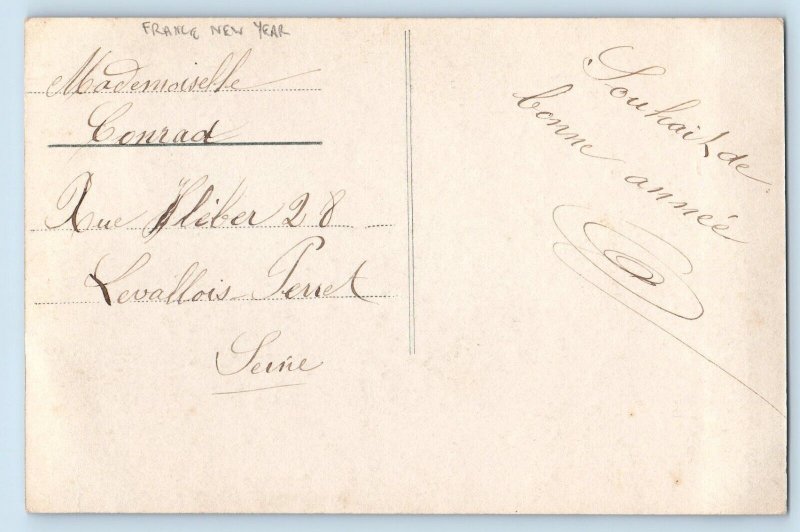 FRANCE NEW YEAR
Mademoiselle
Conrad
Rue Kléber 28
Levallois-Perret
Seine
Souhait de
bonne année